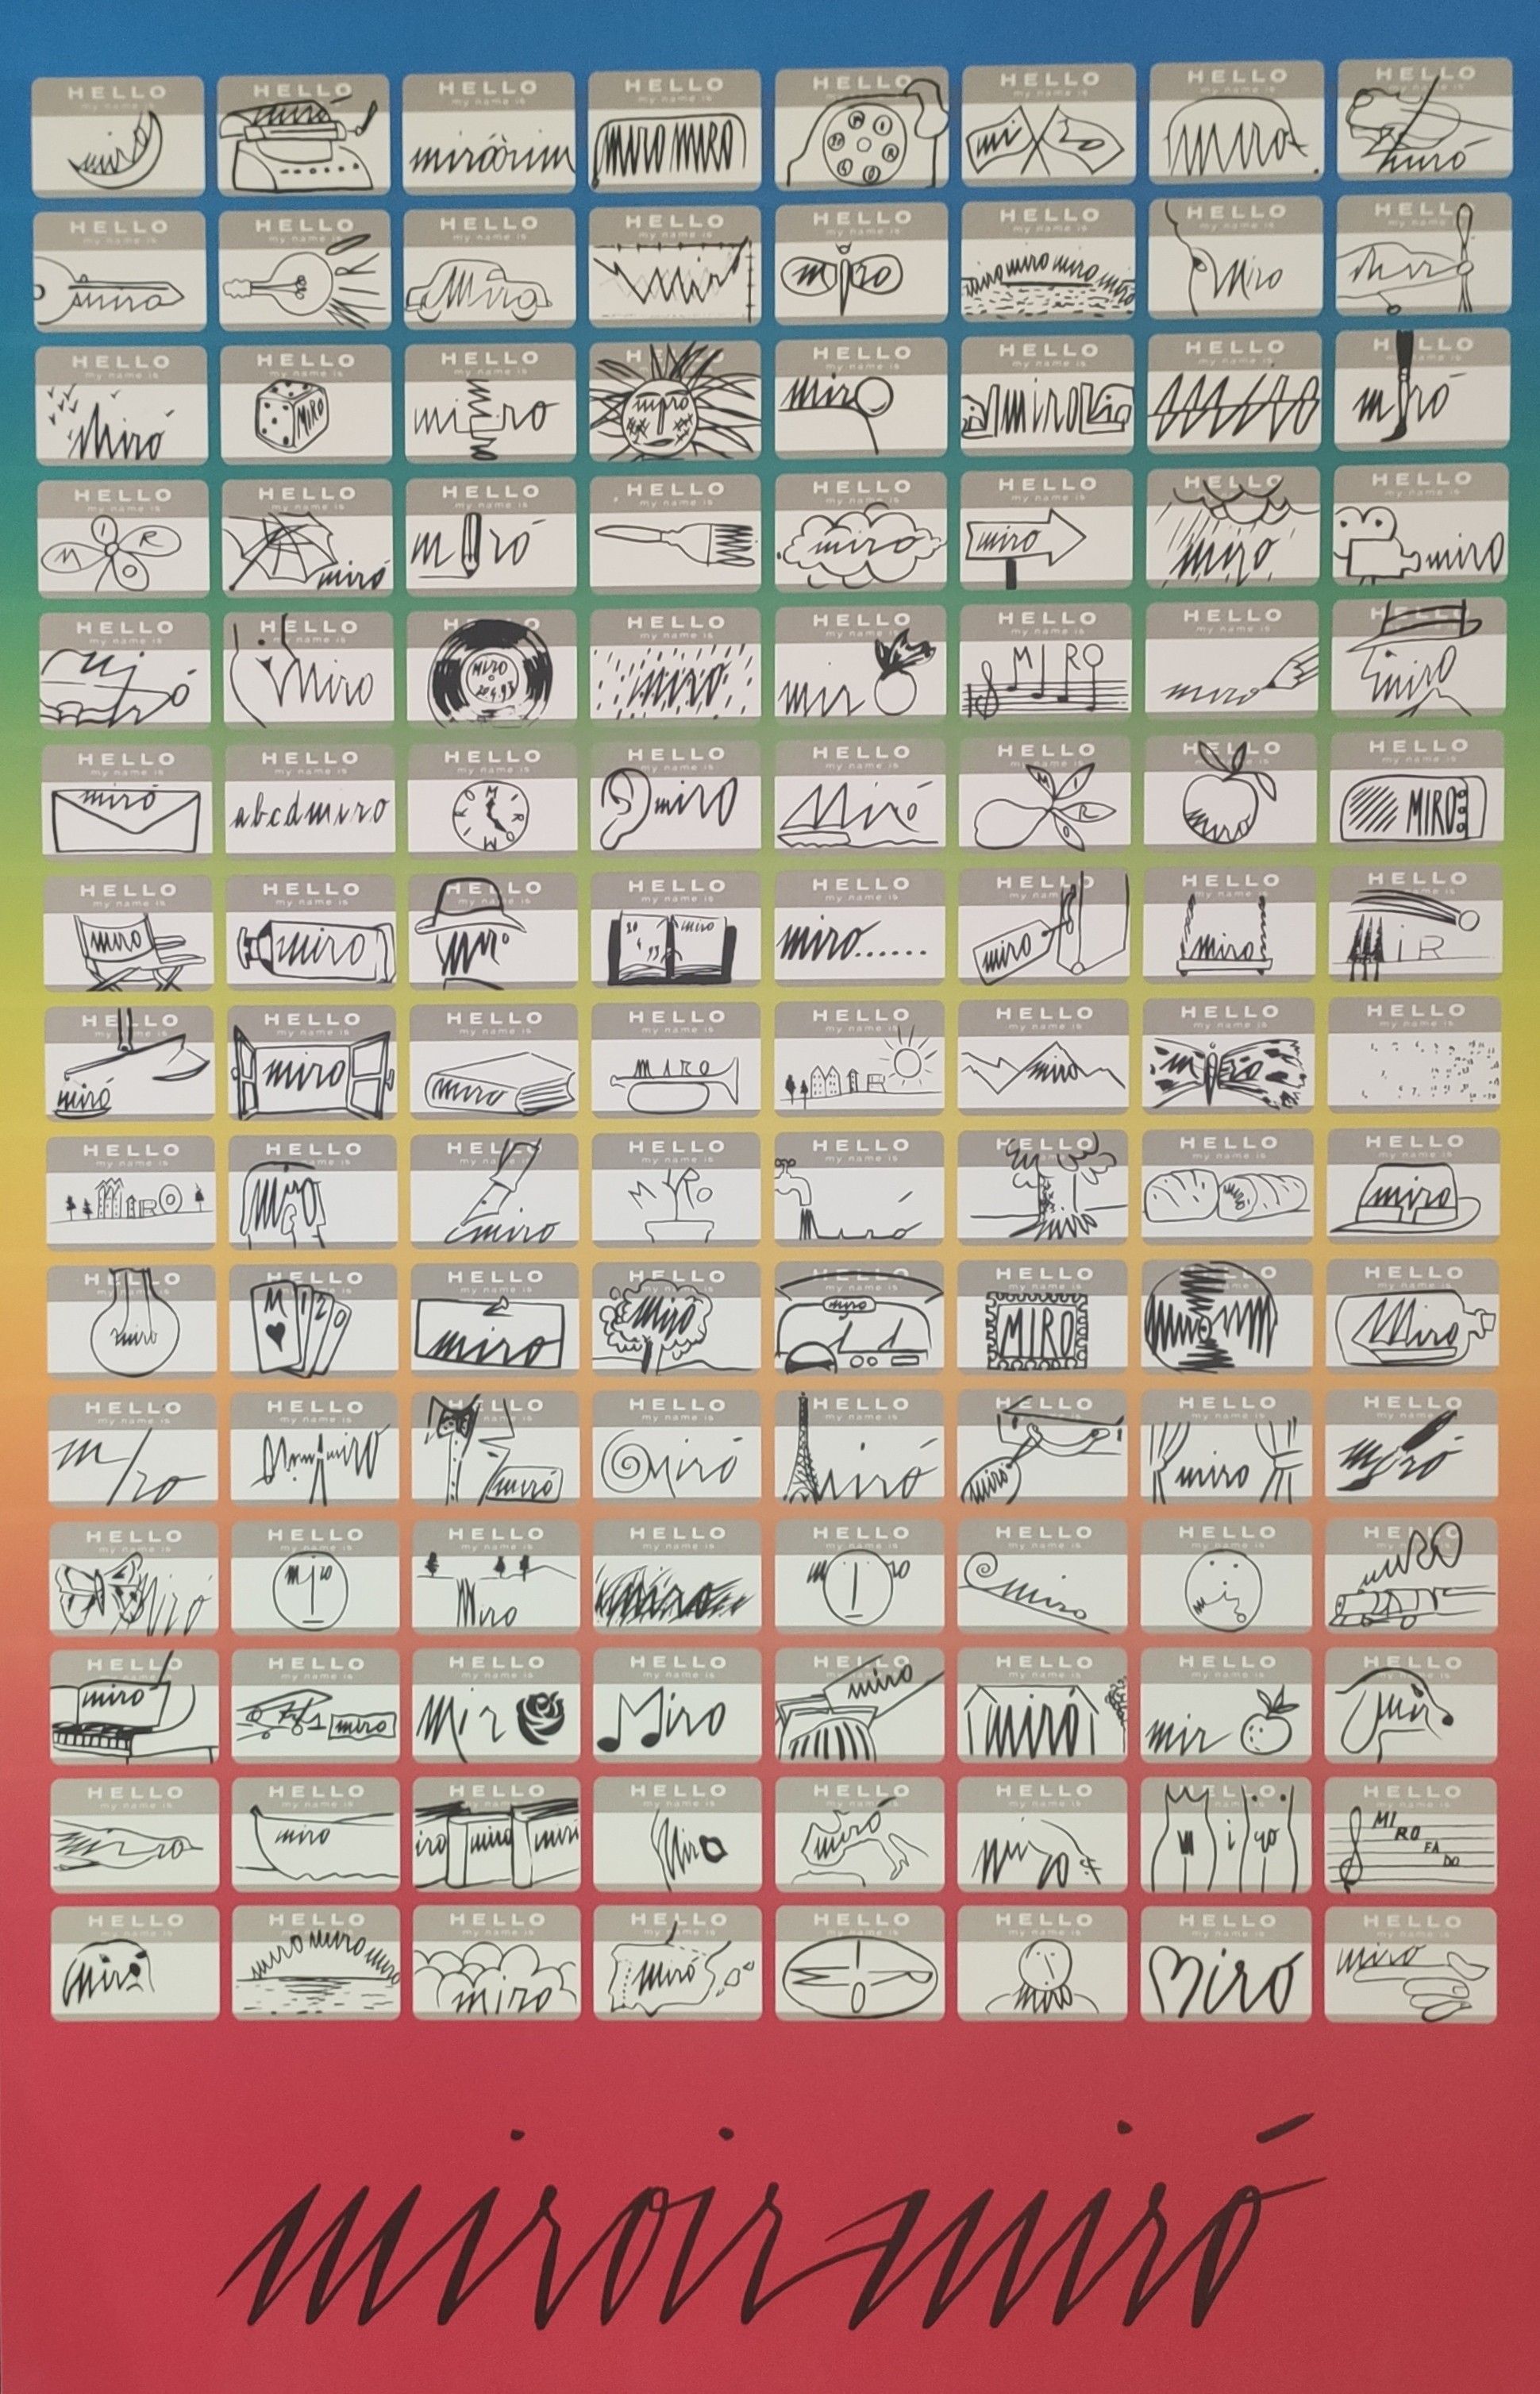 HELLO HELLO HELLO HELLO HELLO HELLO HELLO HELLO
my name is my name is my name is my name is my name is my name is my name is my name is
miró miró miróórim MIRO MIRO mi ro miro miró
HELLO HELLO HELLO HELLO HELLO HELLO HELLO HELLO
my name is my name is my name is my name is my name is my name is my name is my name is
miro Miro Mir m ro miro miro miro miro Miro
HELLO HELLO HELLO HELLO HELLO HELLO HELLO
my name is my name is my name is my name is my name is my name is my name is
Miró MIRO miro miro miro miro miro m ró
HELLO HELLO HELLO HELLO HELLO HELLO HELLO HELLO
my name is my name is my name is my name is my name is my name is my name is my name is
M I R O miró m ró miro miro miro miro
HELLO HELLO HELLO HELLO HELLO HELLO HELLO HELLO
my name is my name is my name is my name is my name is my name is
Miro MIRO 20.4.93 miro mir MIRO miro miro
HELLO HELLO HELLO HELLO HELLO HELLO HELLO HELLO
my name is my name is my name is my name is my name is my name is my name is my name is
miró abcdmiro M I R O M I R O miro Miró M I R O miro MIRO
HELLO HELLO HELLO HELLO HELLO HELLO HELLO HELLO
my name is my name is my name is my name is my name is my name is my name is
miro miro mir 20 4 93 miro miro...... miro miro IR
HELLO HELLO HELLO HELLO HELLO HELLO HELLO HELLO
my name is my name is my name is my name is my name is my name is my name is my name is
miró miro miro miro miro m ro
HELLO HELLO HELLO HELLO HELLO HELLO HELLO HELLO
my name is my name is my name is my name is my name is my name is my name is my name is
MIRO miro miro M RO miro miro
HELLO HELLO HELLO HELLO HELLO HELLO HELLO HELLO
my name is my name is my name is my name is my name is my name is my name is
miro M I R O miro Miró miro MIRO miro Miro
HELLO HELLO HELLO HELLO HELLO HELLO HELLO HELLO
my name is my name is my name is my name is my name is my name is my name is my name is
m/ro miro miró miró miró miró miro miró
HELLO HELLO HELLO HELLO HELLO HELLO HELLO HELLO
my name is my name is my name is my name is my name is my name is my name is
Miró miro Miro miro m ro miro miRO
HELLO HELLO HELLO HELLO HELLO HELLO HELLO HELLO
my name is my name is my name is my name is my name is my name is my name is my name is
miro miro Mir Miro miro miró mir mir
HELLO HELLO HELLO HELLO HELLO HELLO HELLO HELLO
my name is my name is my name is my name is my name is my name is my name is
miro miro iro miro miro Miro miró miro m i ro MI RO FA DO
HELLO HELLO HELLO HELLO HELLO HELLO HELLO HELLO
my name is my name is my name is my name is my name is my name is my name is my name is
Miro miro miro miro miro miró M I R O miro Miró miro
miroir miró